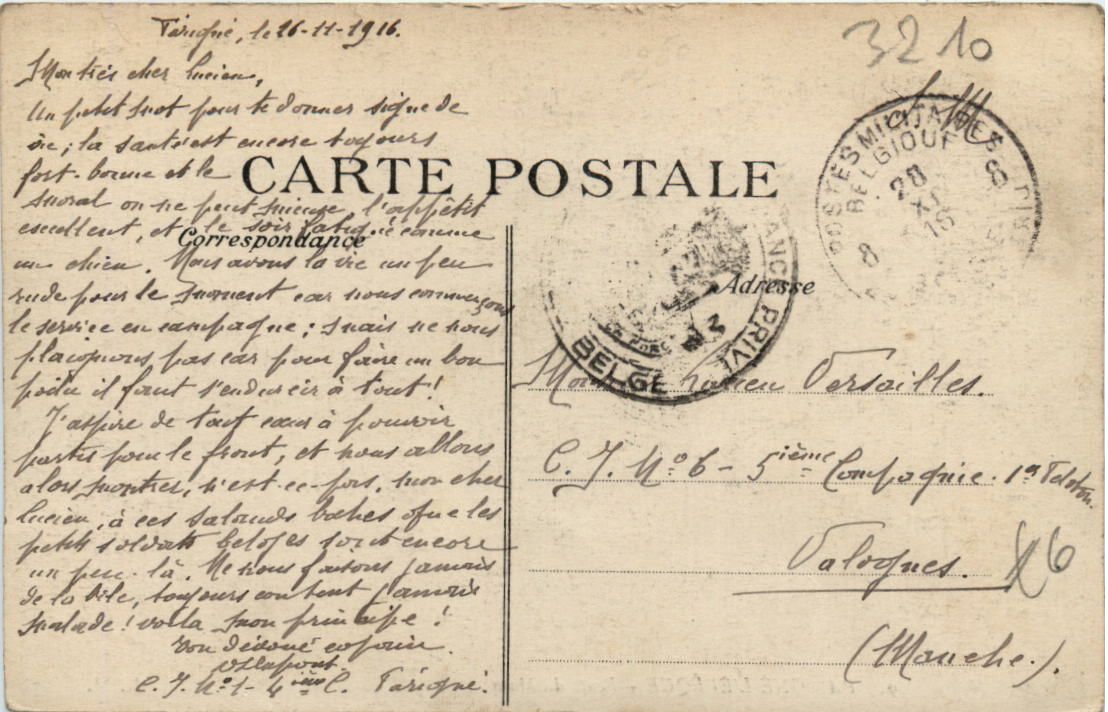 Parigné, le 26-11-1916.
Mon très cher Lucien,
Un petit mot pour te donner signe de
vie; la santé est encore toujours
fort-bonne et le
moral on ne peut mieux l'appétit
excellent, et le soir fatigué comme
un chien. Nous avons la vie un peu
rude pour le moment car nous commençons
le service en campagne; mais ne nous
plaignons pas car pour faire un bon
poilu il faut s'endurcir à tout!
J'aspire de tout cœur à pouvoir
partir pour le front, et nous allons
alors montrer, n'est-ce-pas, mon cher
Lucien, à ces salauds boches que les
petits soldats belges sont encore
un peu-là. Ne nous faisons jamais
de la bile, toujours content jamais
malade! voilà mon principe!
Ton dévoué copain.
C.I. N°1- 4ième C. Parigné.
CARTE POSTALE
Correspondance
Adresse
3210
POSTES MILITAIRES
BELGIQUE
28
XI
16
8
8
BELGE
PRIVÉ
Lucien Versailles.
C.I. N°6 - 5ième Compagnie. 1er Peloton.
Valognes.
6
(Manche.).